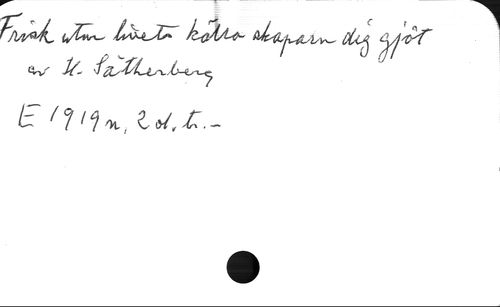 Frisk utur livets källa skaparn dig gjöt
av H. Sätherberg
E 1919 n, 2 d. tr. –